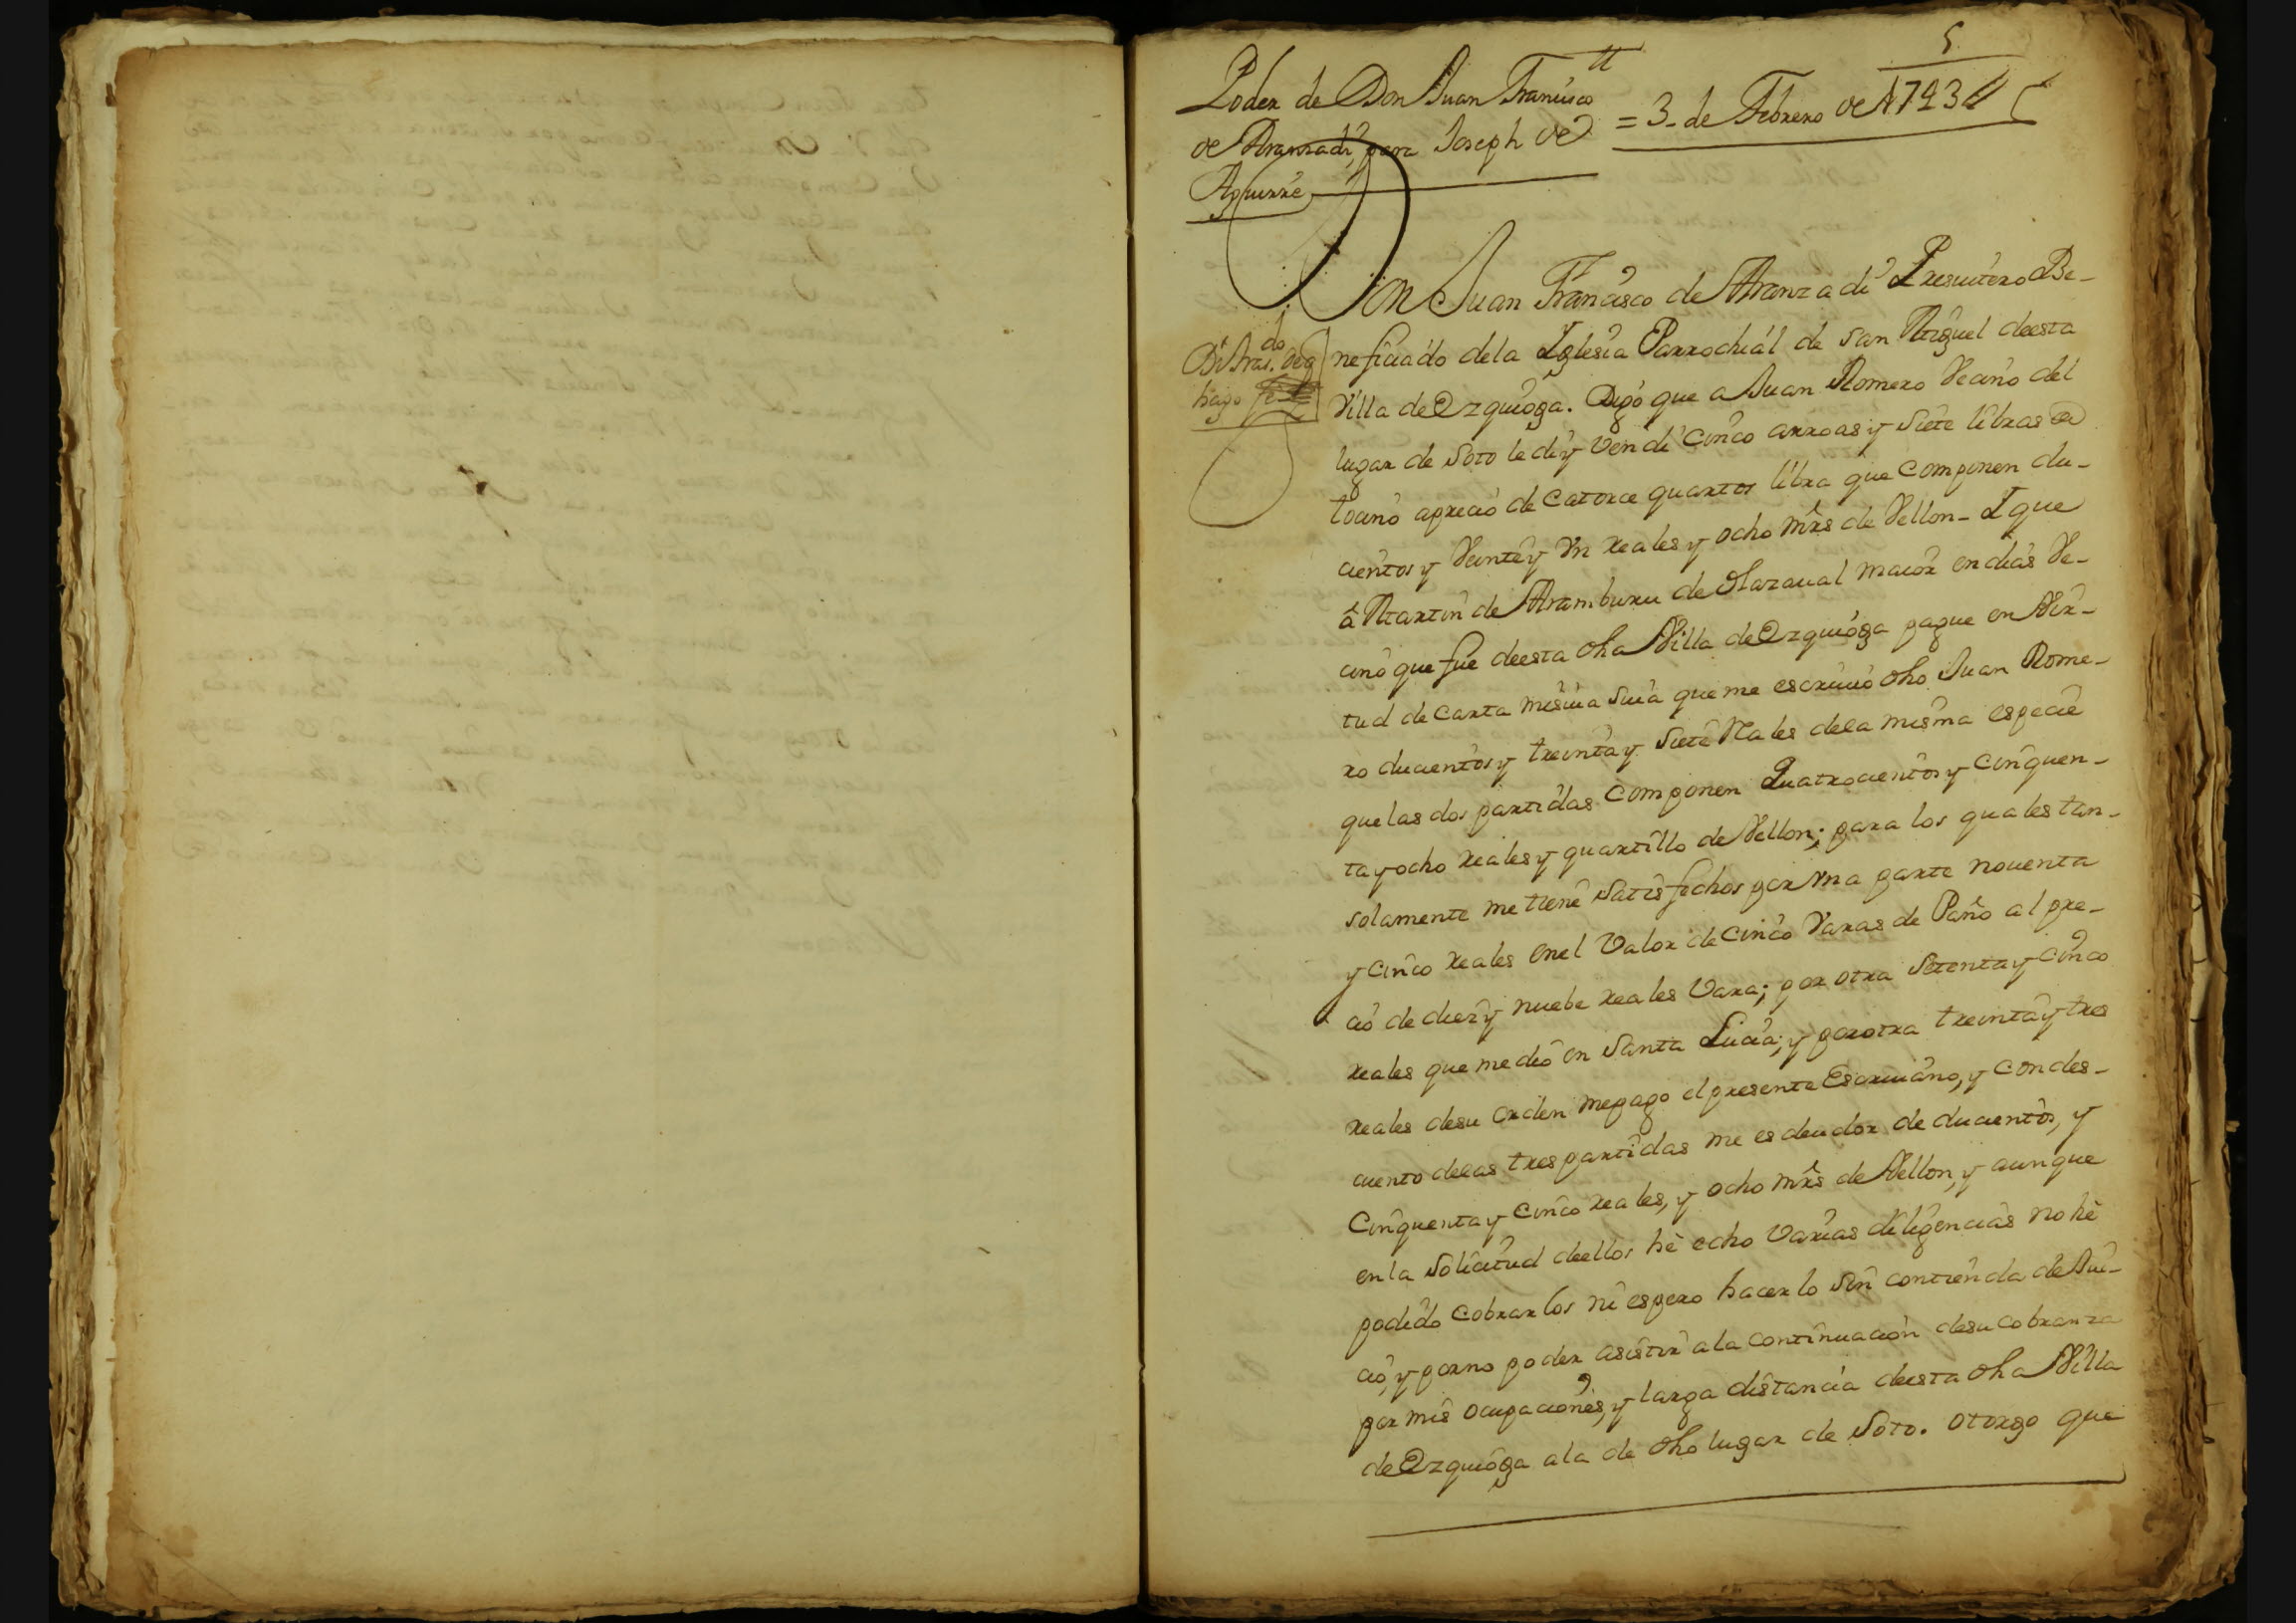 5
Poder de Don Juan Francisco
de Aranzadi, para Joseph de
Aguirre
= 3 de Febrero de 1743
Don Juan Francisco de Aranzadi Presuitero Be-
neficiado dela Iglesia Parrochial de San Miguel deesta
Villa de Ezquioga. Digo que a Juan Romero Vecino del
lugar de Soto le di y vendi cinco arroas y siete libras de
tocino aprecio de catorce quartos libra que componen du-
cientos y Veinte y Vn reales y ocho mrs de Vellon- Y que
â Martin de Aramburu de Olazaual maior en dias Ve-
cino que fue deesta dha Villa de Ezquioga pague en Vir-
tud de carta misiua suia que me escriuio dho Juan Rome-
ro ducientos y treinta y siete Rales dela misma especie
que las dos partidas componen Quatrocientos y cinquen-
ta y ocho reales y quartillo de Vellon; para los quales tan-
solamente me tiene satisfechos por Vna parte nouenta
y cinco reales enel Valor de cinco Varas de Paño al pre-
cio de diez y nuebe reales Vara; por otra setenta y cinco
reales que me dio en Santa Lucia; y por otra treinta y tres
reales desu orden mepago el presente Escriuano, y con des-
cuento delas tres partidas me es deudor de ducientos, y
Cinquenta y cinco reales, y ocho mrs de Vellon, y aunque
en la solicitud deellos hè echo Varias diligencias no hè
podido cobrarlos ni espero hacerlo sin contienda de Jui-
cio, y porno poder asistir ala continuacion desu cobranza
por mis ocupaciones, y larga distancia deesta dha Villa
de Ezquioga ala de dho lugar de Soto. otorgo que
hago fe